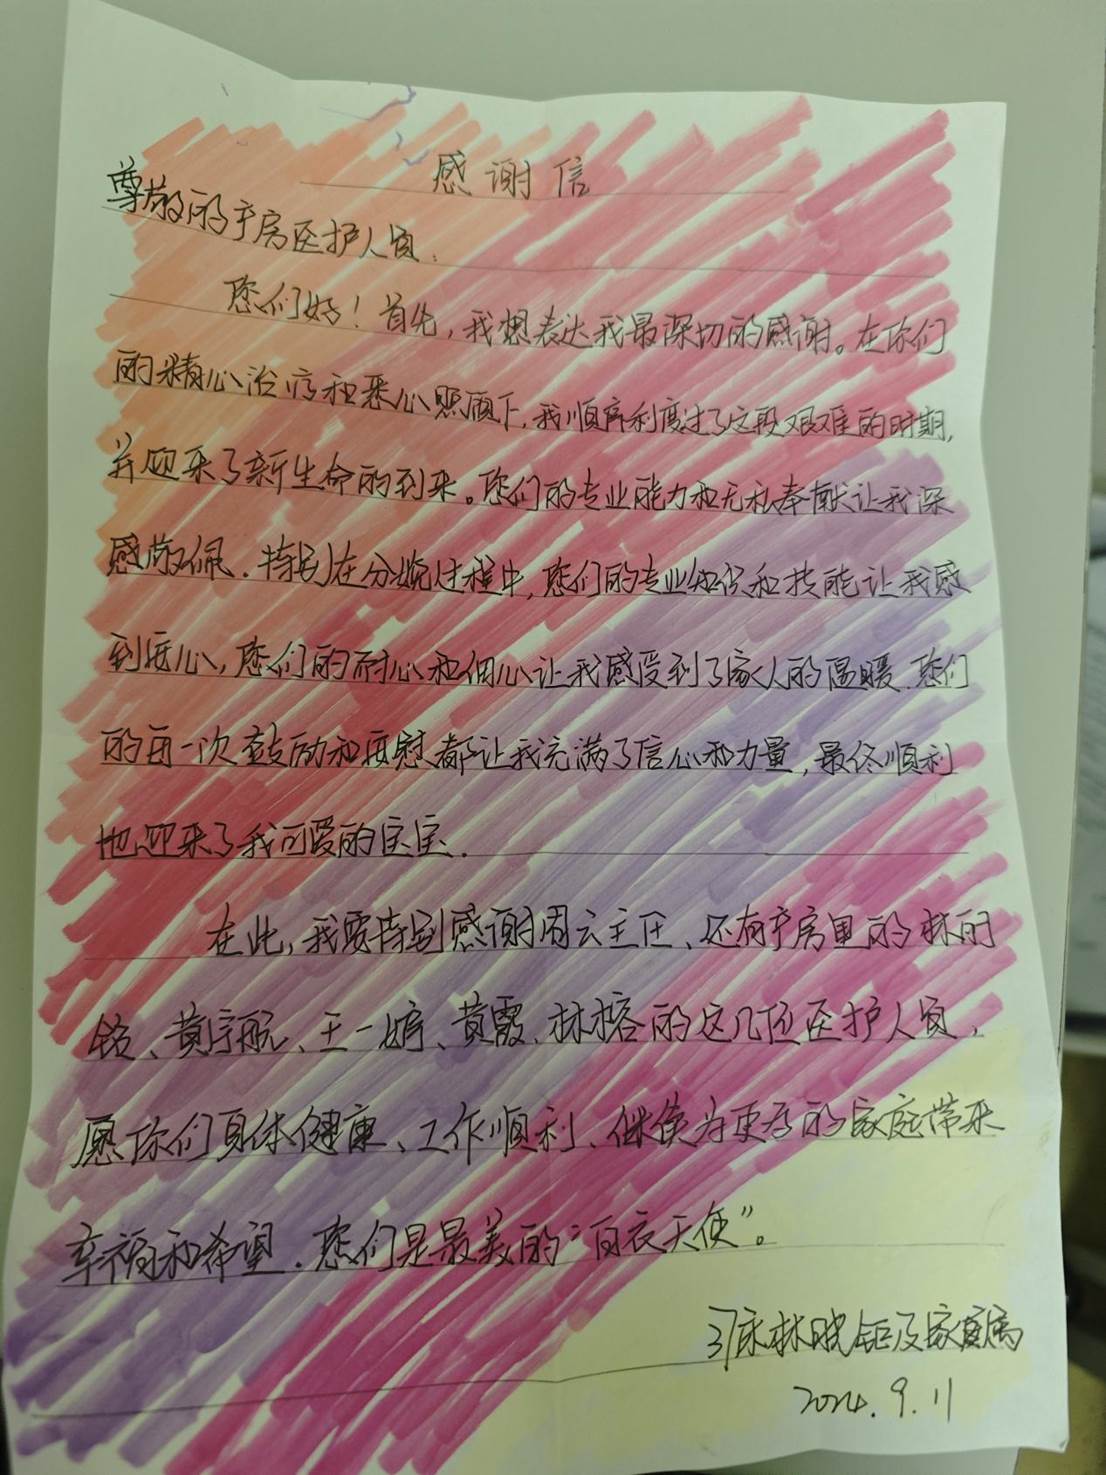 感谢信
尊敬的产房医护人员:
您们好！首先,我想表达我最深切的感谢。在你们
的精心治疗和悉心照顾下,我顺利度过了这段艰难的时期,
并迎来了新生命的到来。您们的专业能力和无私奉献让我深
感敬佩.特别在分娩过程中,您们的专业知识和技能让我感
到安心,您们的耐心和细心让我感受到了家人的温暖.您们
的每一次鼓励和安慰都让我充满了信心和力量,最终顺利
地迎来了我可爱的宝宝.
在此,我要特别感谢周云主任、还有产房里的林丽
钦、黄宇航、王一婷、黄霞、林榕的这几位医护人员,
愿你们身体健康、工作顺利、继续为更多的家庭带来
幸福和希望.您们是最美的“白衣天使”。
37床林晓钜及家属
2024.9.11